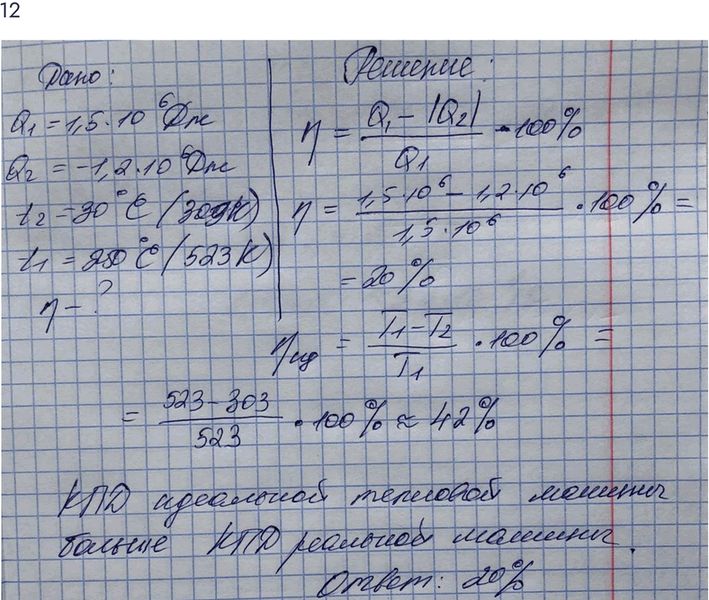 12
Дано:
Q1 = 1,5 · 10^6 Дж
Q2 = -1,2 · 10^6 Дж
t2 = 30°C (303K)
t1 = 250°C (523K)
η - ?
Решение:
η = (Q1 - |Q2|) / Q1 · 100%
η = (1,5·10^6 - 1,2·10^6) / (1,5·10^6) · 100% =
= 20%
ηид = (T1 - T2) / T1 · 100% =
= (523 - 303) / 523 · 100% ≈ 42%
КПД идеальной тепловой машины
больше КПД реальной машины.
Ответ: 20%